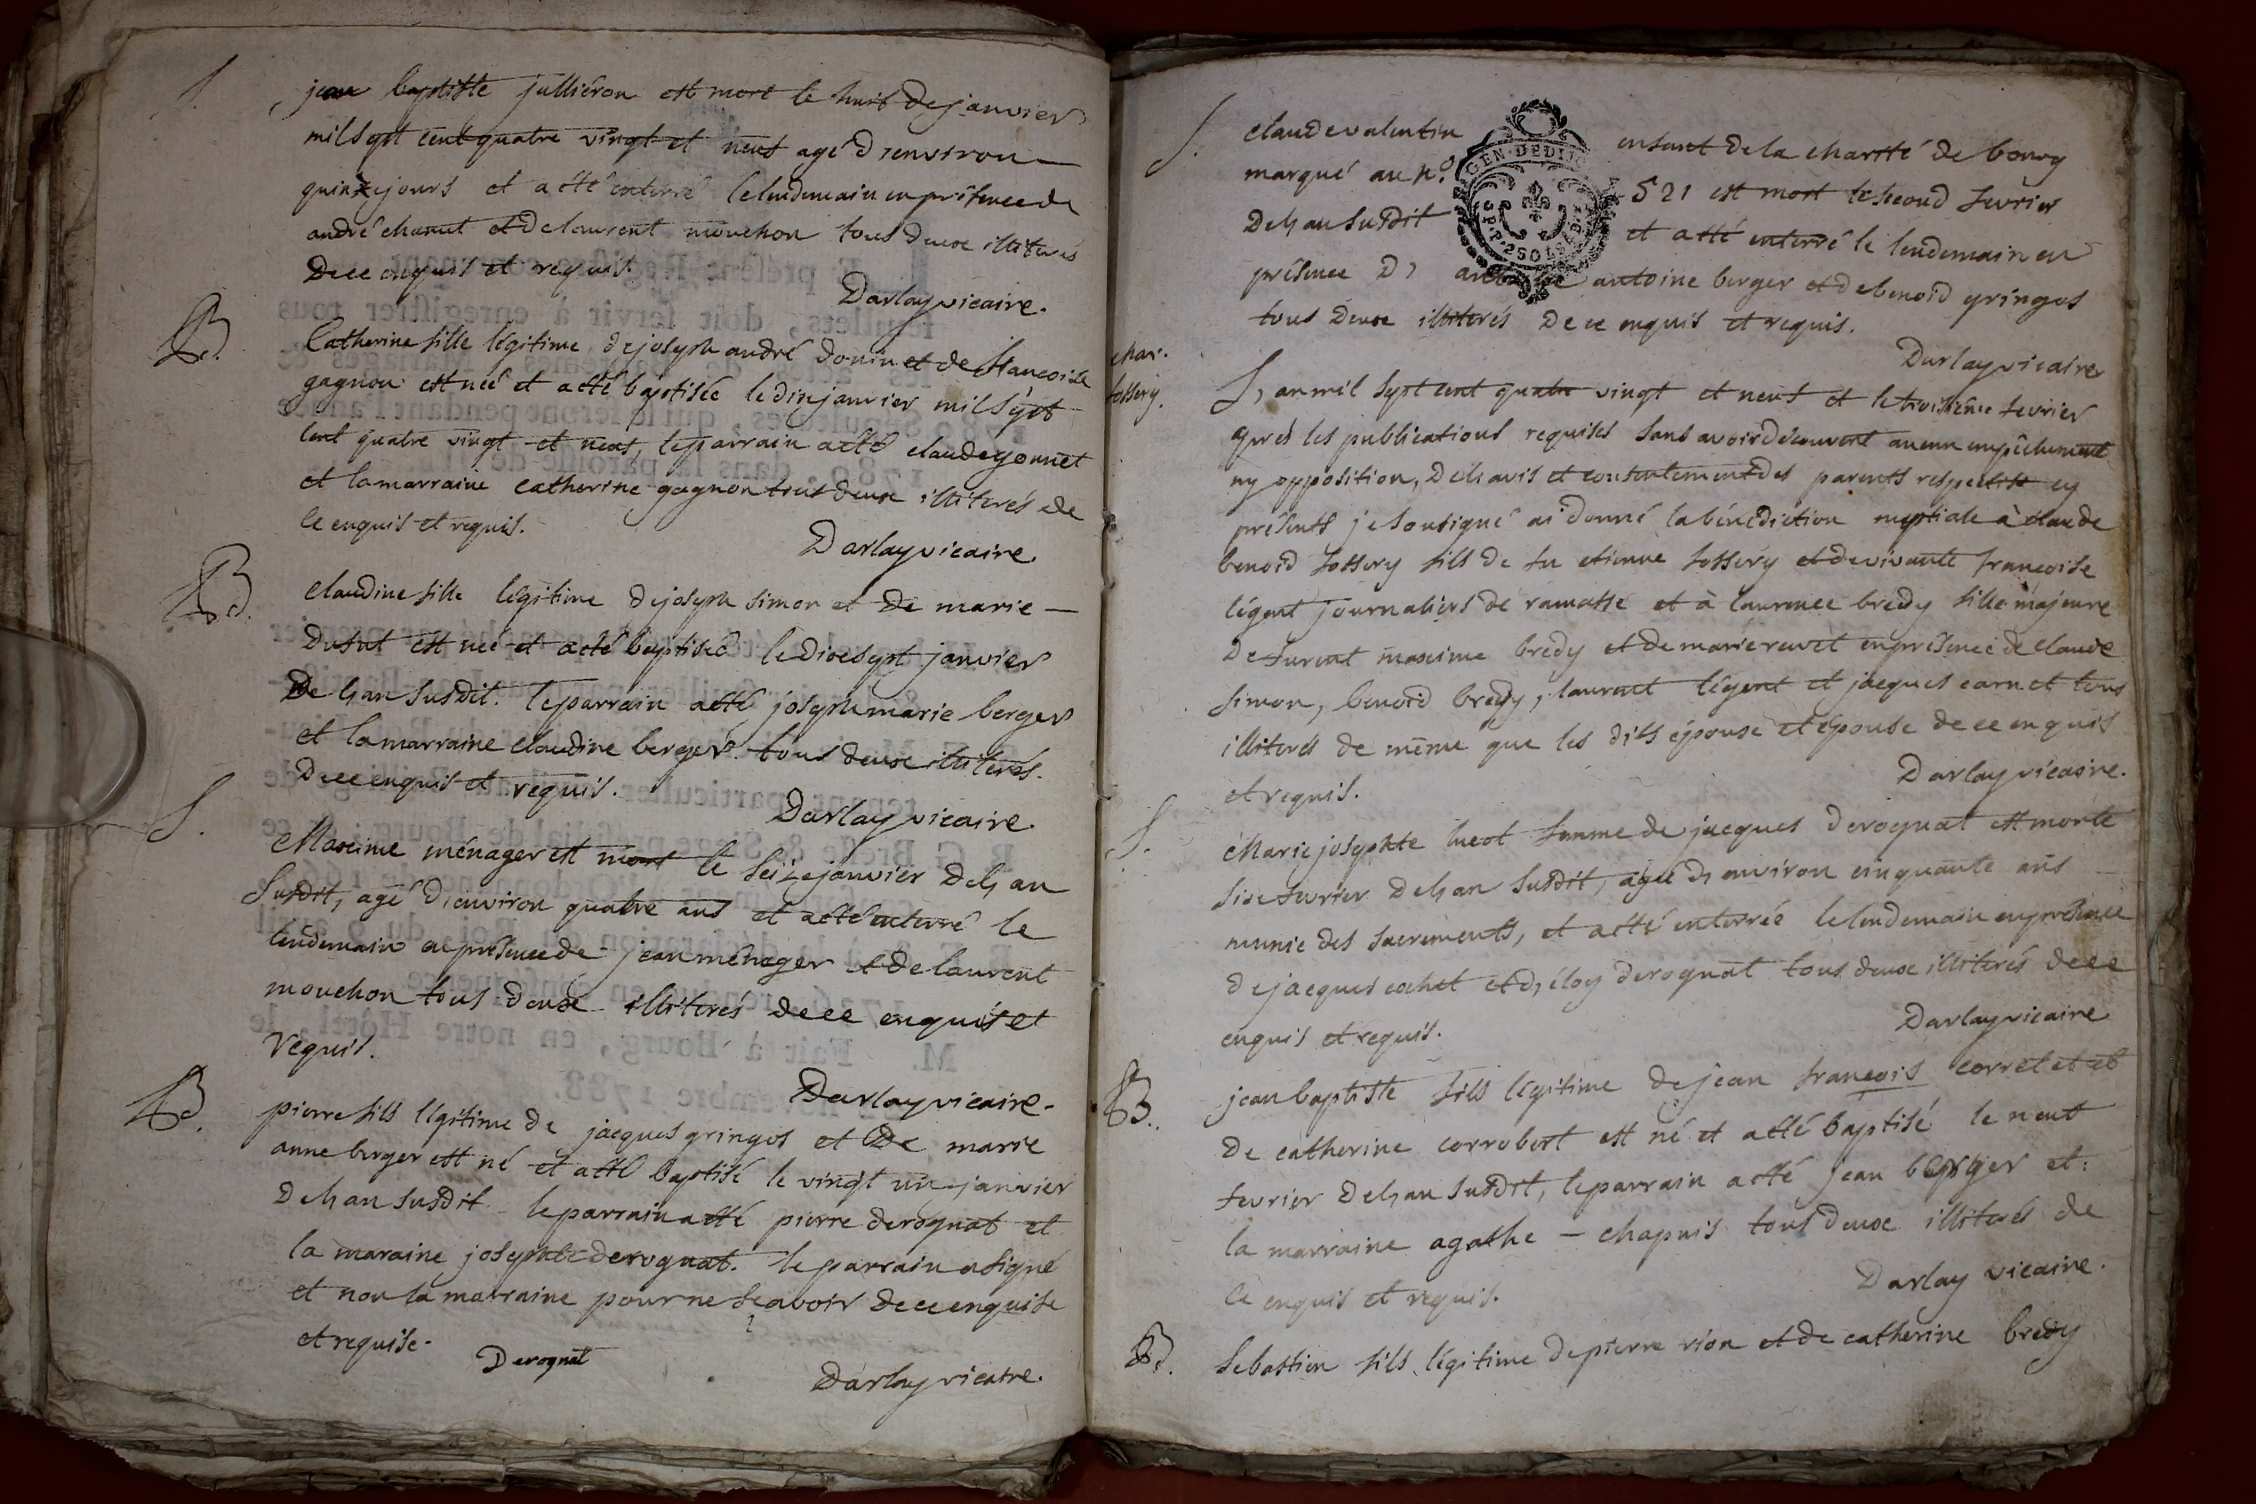 S.
jean baptiste jullieron est mort le huit de janvier
mil sept cent quatre vingt et neuf agé d'environ
quinze jours et a été enterré le lendemain en présence de
andré chanut et de laurent mouchon tous deux illiterés
de ce enquis et requis.
Darlay vicaire.
B.
Catherine fille légitime de joseph andré donin et de françoise
gagnon est neé et a été baptisée le dix janvier mil sept
cent quatre vingt et neuf, le parrain a été claude gonnet
et la marraine catherine gagnon tous deux illiterés de
ce enquis et requis.
Darlay vicaire
B.
claudine fille légitime de joseph simon et de marie
dufut est neé et a été baptisée le dix sept janvier
de l'an susdit. le parrain a été joseph marie berger
et la marraine claudine berger. tous deux illiterés.
de ce enquis et requis.
Darlay vicaire
S.
Maxime ménager est mort le seize janvier de l'an
susdit, agé d'environ quatre ans et a été enterré le
lendemain en présence de jean ménager et de laurent
mouchon tous deux illiterés de ce enquis et
requis.
Darlay vicaire.
B.
pierre fils légitime de jacques gringos et de marie
anne berger est né et a été baptisé le vingt un janvier
de l'an susdit le parrain a été pierre derognat et
la maraine josephte derognat. le parrain a signé
et non la marraine pour ne sçavoir de ce enquise
et requise.
Derognat
Darlay vicaire.
S.
claude valentin enfant de la charité de bourg
marqué au n° 521 est mort le second fevrier
de l'an susdit et a été enterré le lendemain en
présence d' antoine berger et de benoid gringos
tous deux illiterés de ce enquis et requis.
GEN. DE DIJON
2 SOLS
Darlay vicaire
mar.
fossery.
L'an mil sept cent quatre vingt et neuf et le troisième fevrier
aprés les publications requises sans avoir découvert aucun empêchement
ny opposition, de l'avis et consentement des parents respectifs cy
présents je soussigné ai donné la bénédiction nuptiale à claude
benoid fossery fils de fu etienne fossery et de vivante françoise
légent journaliers de ramasse et à laurence bredy fille majeure
de furent maxime bredy et de marie revet en présence de claude
simon, benoid bredy, laurent légent et jacques carnet tous
illiterés de même que les dits époux et épouse de ce enquis
et requis.
Darlay vicaire.
S.
Marie josephte lucot femme de jacques derognat est morte
six fevrier de l'an susdit, agée d'environ cinquante ans
munie des sacrements, et a été enterrée le lendemain en présence
de jacques cochet et d'éloy derognat tous deux illiterés de ce
enquis et requis.
Darlay vicaire
B.
jean baptiste fils légitime de jean françois corretet et
de catherine corrobert est né et a été baptisé le neuf
fevrier de l'an susdit, le parrain a été jean berger et
la marraine agathe – chapuis tous deux illiterés de
ce enquis et requis.
Darlay vicaire.
B.
Sebastien fils légitime de pierre rion et de catherine bredy